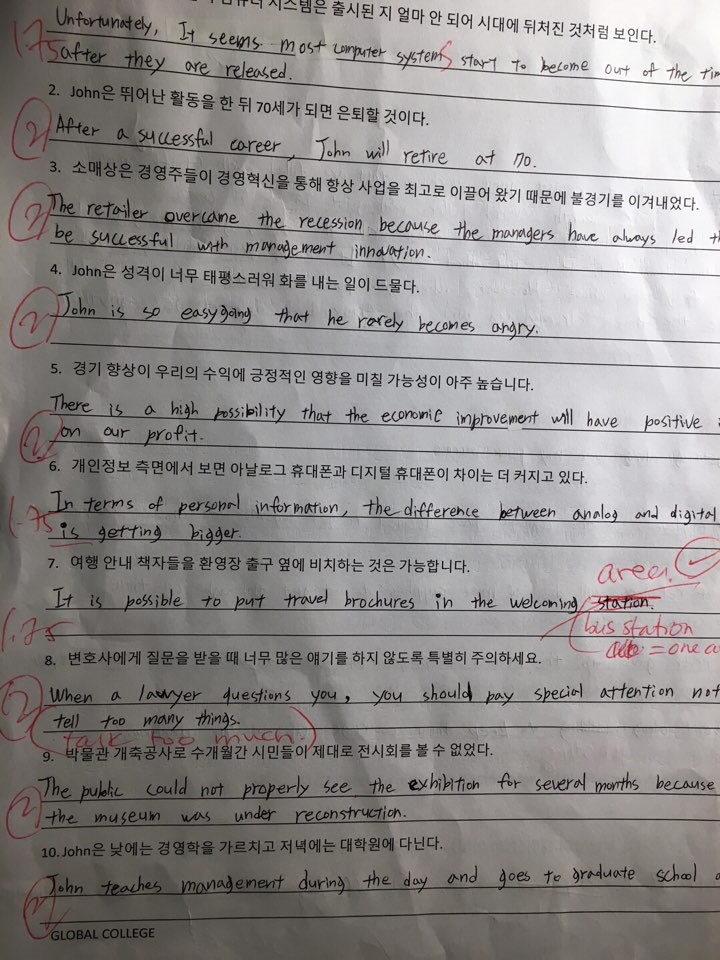 시스템은 출시된 지 얼마 안 되어 시대에 뒤처진 것처럼 보인다.
Unfortunately, It seems most computer systems start to become out of the
1.75 after they are released.
2. John은 뛰어난 활동을 한 뒤 70세가 되면 은퇴할 것이다.
2 After a successful career, John will retire at 70.
3. 소매상은 경영주들이 경영혁신을 통해 항상 사업을 최고로 이끌어 왔기 때문에 불경기를 이겨내었다.
2 The retailer overcame the recession because the managers have always led
be successful with management innovation.
4. John은 성격이 너무 태평스러워 화를 내는 일이 드물다.
2 John is so easygoing that he rarely becomes angry.
5. 경기 향상이 우리의 수익에 긍정적인 영향을 미칠 가능성이 아주 높습니다.
There is a high possibility that the economic improvement will have positive
2 on our profit.
6. 개인정보 측면에서 보면 아날로그 휴대폰과 디지털 휴대폰이 차이는 더 커지고 있다.
1.75 In terms of personal information, the difference between analog and digital
is getting bigger.
7. 여행 안내 책자들을 환영장 출구 옆에 비치하는 것은 가능합니다.
area.
It is possible to put travel brochures in the welcoming station.
1.75 bus station
= one
8. 변호사에게 질문을 받을 때 너무 많은 얘기를 하지 않도록 특별히 주의하세요.
2 When a lawyer questions you, you should pay special attention not
tell too many things.
talk too much.
9. 박물관 개축공사로 수개월간 시민들이 제대로 전시회를 볼 수 없었다.
2 The public could not properly see the exhibition for several months because
the museum was under reconstruction.
10. John은 낮에는 경영학을 가르치고 저녁에는 대학원에 다닌다.
2 John teaches management during the day and goes to graduate school
GLOBAL COLLEGE